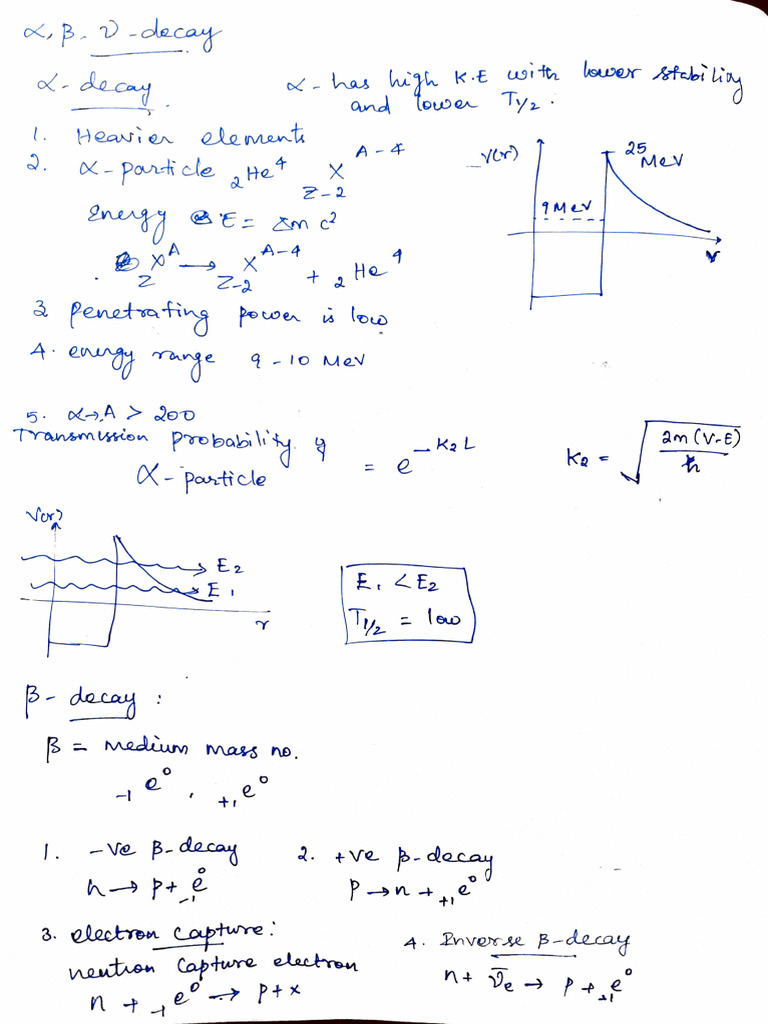 α, β, ν-decay
α-decay.
α-has high K.E with lower stability
and lower T1/2.
1. Heavier elements
2. α-particle ₂He⁴ X Z-2 A-4
Energy E = Δm c²
Z X A → Z-2 X A-4 + ₂He⁴
3 penetrating power is low
4. energy range 9-10 MeV
V(r)
25 MeV
9 MeV
r
5. α→A > 200
Transmission probability of
α-particle = e^-K₂L
K₂ = √2m(V-E)/ħ
V(r)
E₂
E₁
r
E₁ < E₂
T1/2 = low
β-decay :
β = medium mass no.
₋₁e⁰, ₊₁e⁰
1. -ve β-decay
n → p + ₋₁e⁰
2. +ve β-decay
p → n + ₊₁e⁰
3. electron capture:
neutron capture electron
n + ₋₁e⁰ → p + x
4. Inverse β-decay
n + ν̄e → p + ₊₁e⁰